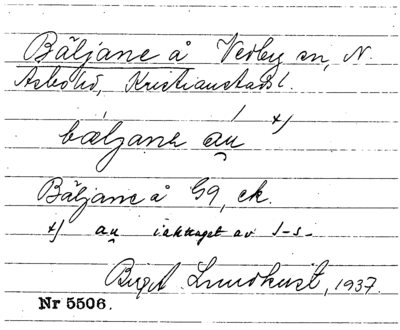 Bäljane å Vedby sn, N.
Åsbo hd, Kristianstads l.
bæljanə au̯ x)
Bäljane å G9, ek.
x) au̯ iakttaget av S-s-
Birgit Lundkvist, 1937.
Nr 5506.